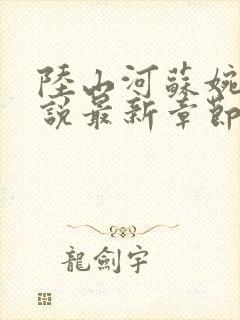 陸山河蘇婉
說最新章節
龍劍宇